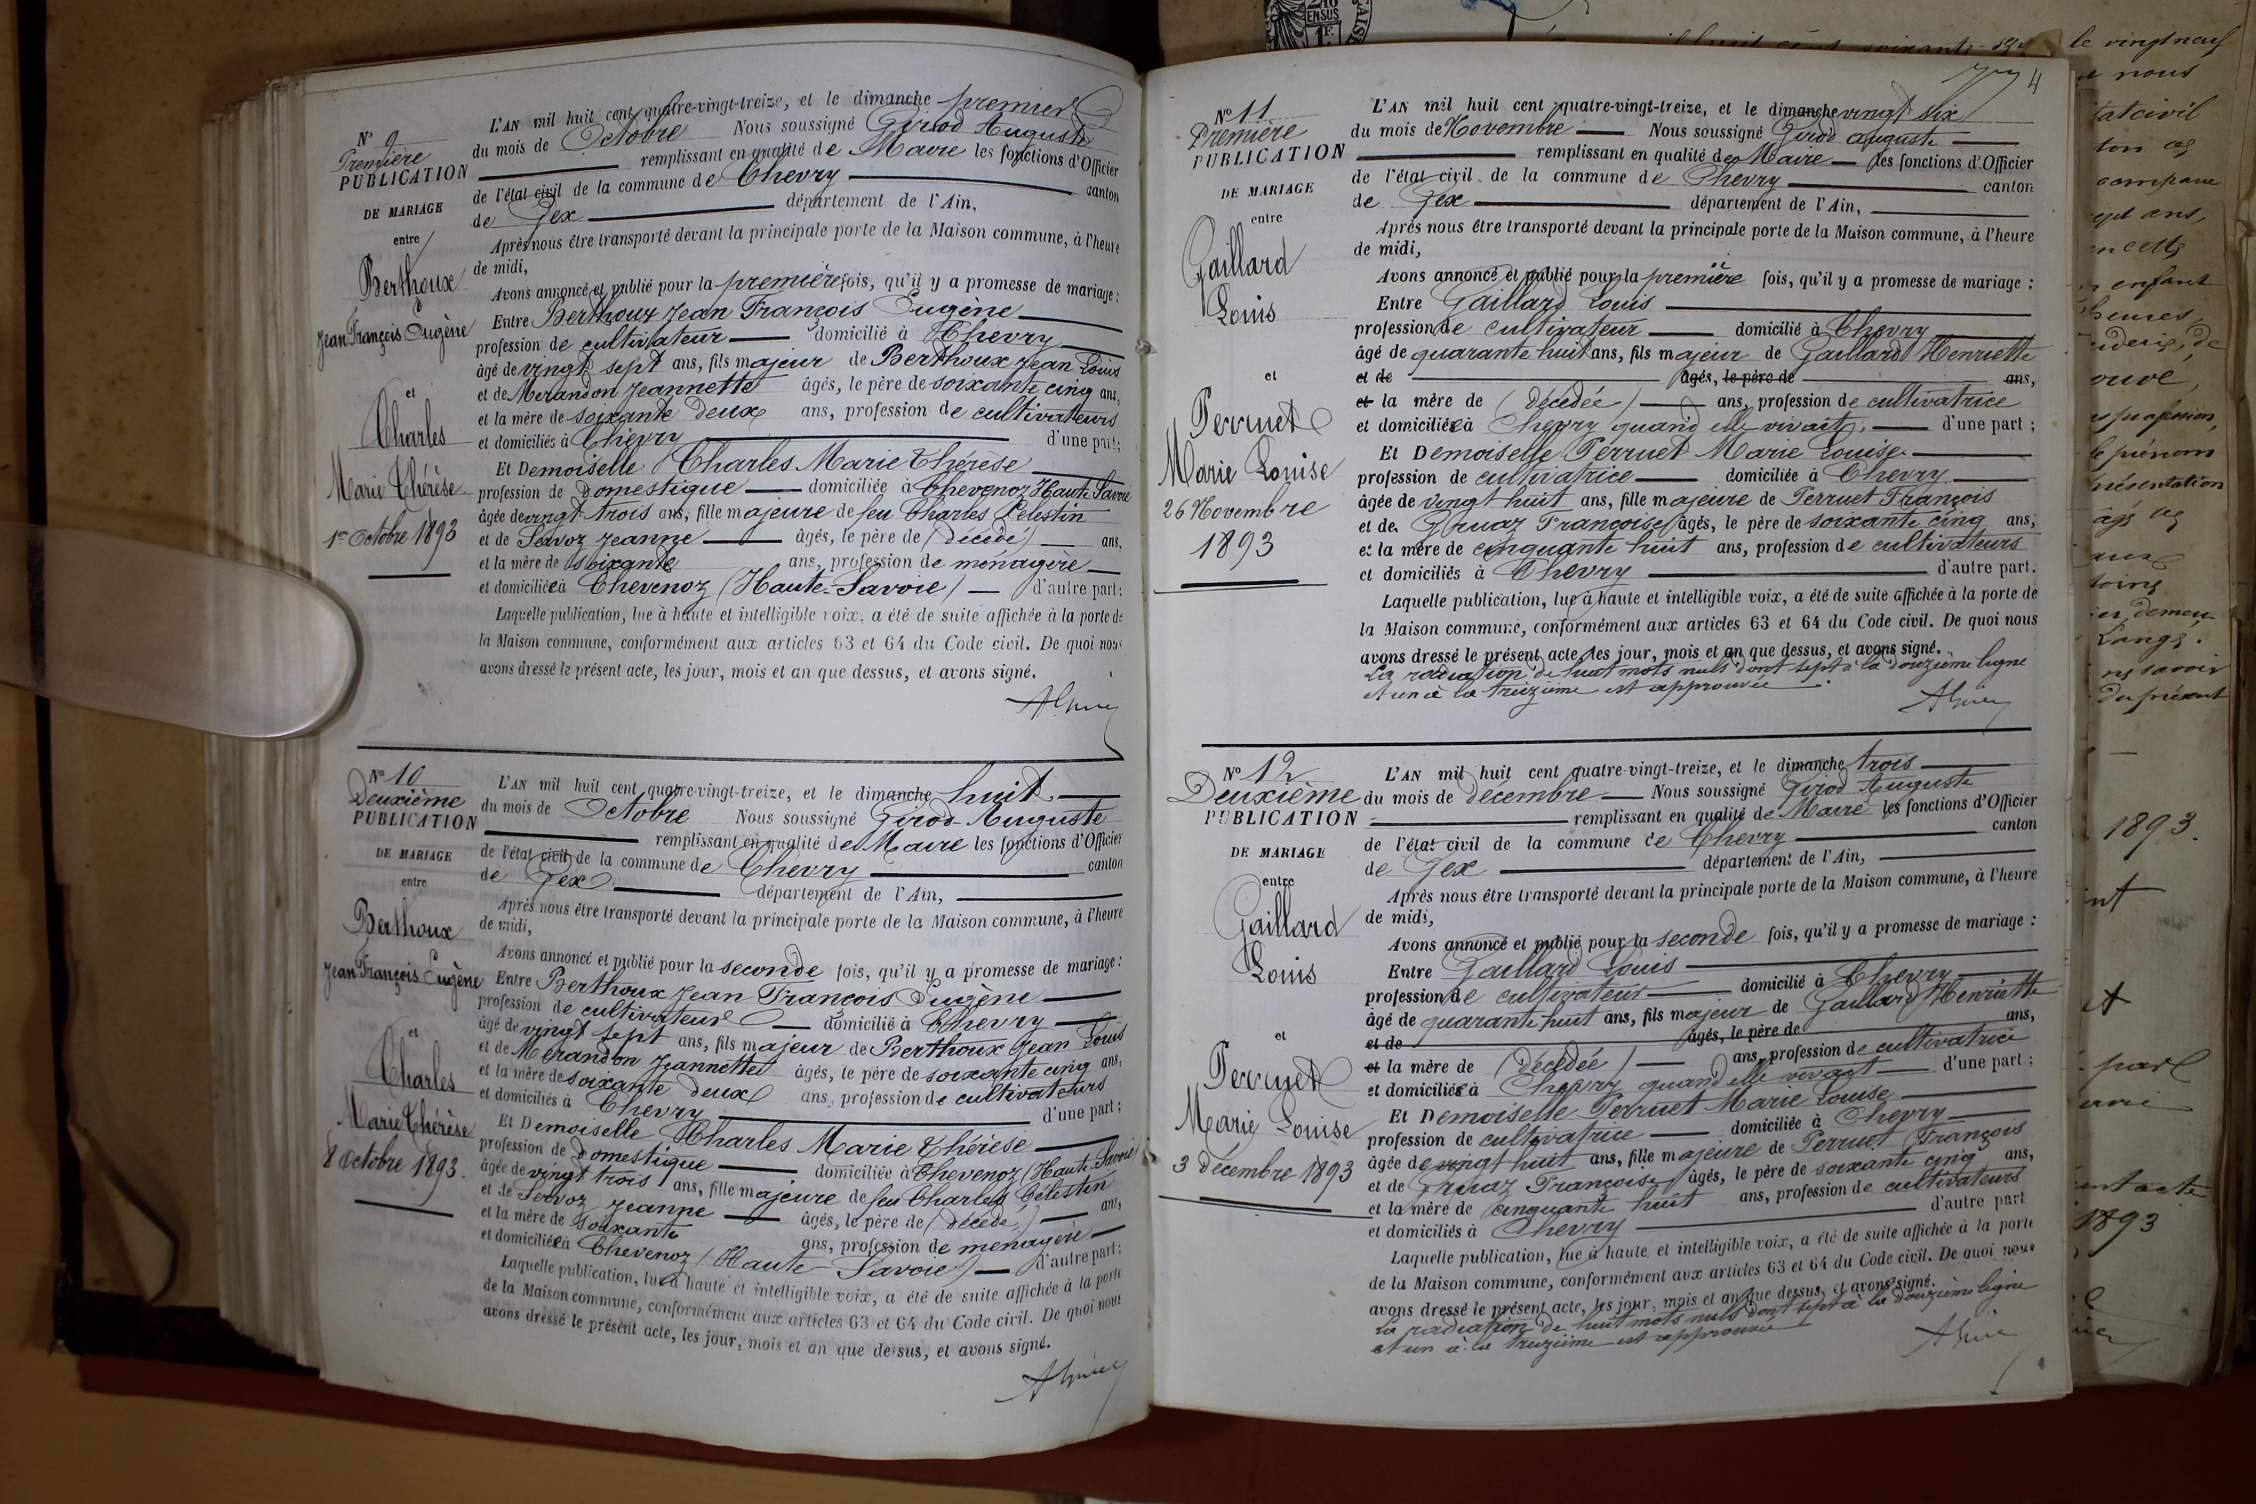 N° 9
Première
PUBLICATION
DE MARIAGE
entre
Berthoux
Jean François Eugène
et
Charles
Marie Thérèse
1er Octobre 1893
L'AN mil huit cent quatre-vingt-treize, et le dimanche premier
du mois de Octobre Nous soussigné Girod Auguste
remplissant en qualité de Maire les fonctions d'Officier
de l'état civil de la commune de Chevry canton
de Gex département de l'Ain,
Après nous être transporté devant la principale porte de la Maison commune, à l'heure
de midi,
Avons annoncé et publié pour la première fois, qu'il y a promesse de mariage :
Entre Berthoux Jean François Eugène
profession de cultivateur domicilié à Chevry
âgé de vingt sept ans, fils majeur de Berthoux Jean Louis
et de Merandon Jeannette âgés, le père de soixante cinq ans,
et la mère de soixante deux ans, profession de cultivateurs
et domiciliés à Chevry d'une part;
Et Demoiselle Charles Marie Thérèse
profession de domestique domiciliée à Chevenoz Haute Savoie
âgée de vingt trois ans, fille majeure de feu Charles Célestin
et de Servoz Jeanne âgés, le père de (décédé) ans,
et la mère de soixante ans, profession de ménagère
et domiciliée à Chevenoz (Haute-Savoie) d'autre part;
Laquelle publication, lue à haute et intelligible voix, a été de suite affichée à la porte de
la Maison commune, conformément aux articles 63 et 64 du Code civil. De quoi nous
avons dressé le présent acte, les jour, mois et an que dessus, et avons signé.
N° 10
Deuxième
PUBLICATION
DE MARIAGE
entre
Berthoux
Jean François Eugène
et
Charles
Marie Thérèse
8 Octobre 1893.
L'AN mil huit cent quatre-vingt-treize, et le dimanche huit
du mois de Octobre Nous soussigné Girod Auguste
remplissant en qualité de Maire les fonctions d'Officier
de l'état civil de la commune de Chevry canton
de Gex département de l'Ain,
Après nous être transporté devant la principale porte de la Maison commune, à l'heure
de midi,
Avons annoncé et publié pour la seconde fois, qu'il y a promesse de mariage :
Entre Berthoux Jean François Eugène
profession de cultivateur domicilié à Chevry
âgé de vingt sept ans, fils majeur de Berthoux Jean Louis
et de Merandon Jeannette âgés, le père de soixante cinq ans,
et la mère de soixante deux ans, profession de cultivateurs
et domiciliés à Chevry d'une part;
Et Demoiselle Charles Marie Thérèse
profession de domestique domiciliée à Chevenoz (Haute-Savoie)
âgée de vingt trois ans, fille majeure de feu Charles Célestin
et de Servoz Jeanne âgés, le père de (décédé) ans,
et la mère de soixante ans, profession de ménagère
et domiciliée à Chevenoz (Haute-Savoie) d'autre part;
Laquelle publication, lue à haute et intelligible voix, a été de suite affichée à la porte
de la Maison commune, conformément aux articles 63 et 64 du Code civil. De quoi nous
avons dressé le présent acte, les jour, mois et an que dessus, et avons signé.
4
N° 11
Première
PUBLICATION
DE MARIAGE
entre
Gaillard
Louis
et
Perruet
Marie Louise
26 Novembre
1893
L'AN mil huit cent quatre-vingt-treize, et le dimanche vingt six
du mois de Novembre Nous soussigné Girod Auguste
remplissant en qualité de Maire les fonctions d'Officier
de l'état civil de la commune de Chevry canton
de Gex département de l'Ain,
Après nous être transporté devant la principale porte de la Maison commune, à l'heure
de midi,
Avons annoncé et publié pour la première fois, qu'il y a promesse de mariage :
Entre Gaillard Louis
profession de cultivateur domicilié à Chevry
âgé de quarante huit ans, fils majeur de Gaillard Henriette
et de âgés, le père de ans,
et la mère de (décédée) ans, profession de cultivatrice
et domiciliée à Chevry quand elle vivait, d'une part ;
Et Demoiselle Perruet Marie Louise
profession de cultivatrice domiciliée à Chevry
âgée de vingt huit ans, fille majeure de Perruet François
et de Gruaz Françoise âgés, le père de soixante cinq ans,
et la mère de cinquante huit ans, profession de cultivateurs
et domiciliés à Chevry d'autre part.
Laquelle publication, lue à haute et intelligible voix, a été de suite affichée à la porte de
la Maison commune, conformément aux articles 63 et 64 du Code civil. De quoi nous
avons dressé le présent acte, les jour, mois et an que dessus, et avons signé.
La radiation de huit mots nuls dont sept à la douzième ligne
et un à la treizième est approuvée
N° 12
Deuxième
PUBLICATION
DE MARIAGE
entre
Gaillard
Louis
et
Perruet
Marie Louise
3 Décembre 1893
L'AN mil huit cent quatre-vingt-treize, et le dimanche trois
du mois de décembre Nous soussigné Girod Auguste
remplissant en qualité de Maire les fonctions d'Officier
de l'état civil de la commune de Chevry canton
de Gex département de l'Ain,
Après nous être transporté devant la principale porte de la Maison commune, à l'heure
de midi,
Avons annoncé et publié pour la seconde fois, qu'il y a promesse de mariage :
Entre Gaillard Louis
profession de cultivateur domicilié à Chevry
âgé de quarante huit ans, fils majeur de Gaillard Henriette
et de âgés, le père de ans,
et la mère de (décédée) ans, profession de cultivatrice
et domiciliée à Chevry quand elle vivait d'une part ;
Et Demoiselle Perruet Marie Louise
profession de cultivatrice domiciliée à Chevry
âgée de vingt huit ans, fille majeure de Perruet François
et de Gruaz Françoise âgés, le père de soixante cinq ans,
et la mère de cinquante huit ans, profession de cultivateurs
et domiciliés à Chevry d'autre part
Laquelle publication, lue à haute et intelligible voix, a été de suite affichée à la porte
de la Maison commune, conformément aux articles 63 et 64 du Code civil. De quoi nous
avons dressé le présent acte, les jour, mois et an que dessus, et avons signé.
La radiation de huit mots nuls dont sept à la douzième ligne
et un à la treizième est approuvée
le vingt neuf
nous
ans,
enfant
heures,
profession,
prénom
présentation
Lange.
du présent
1893.
par
acte
1893